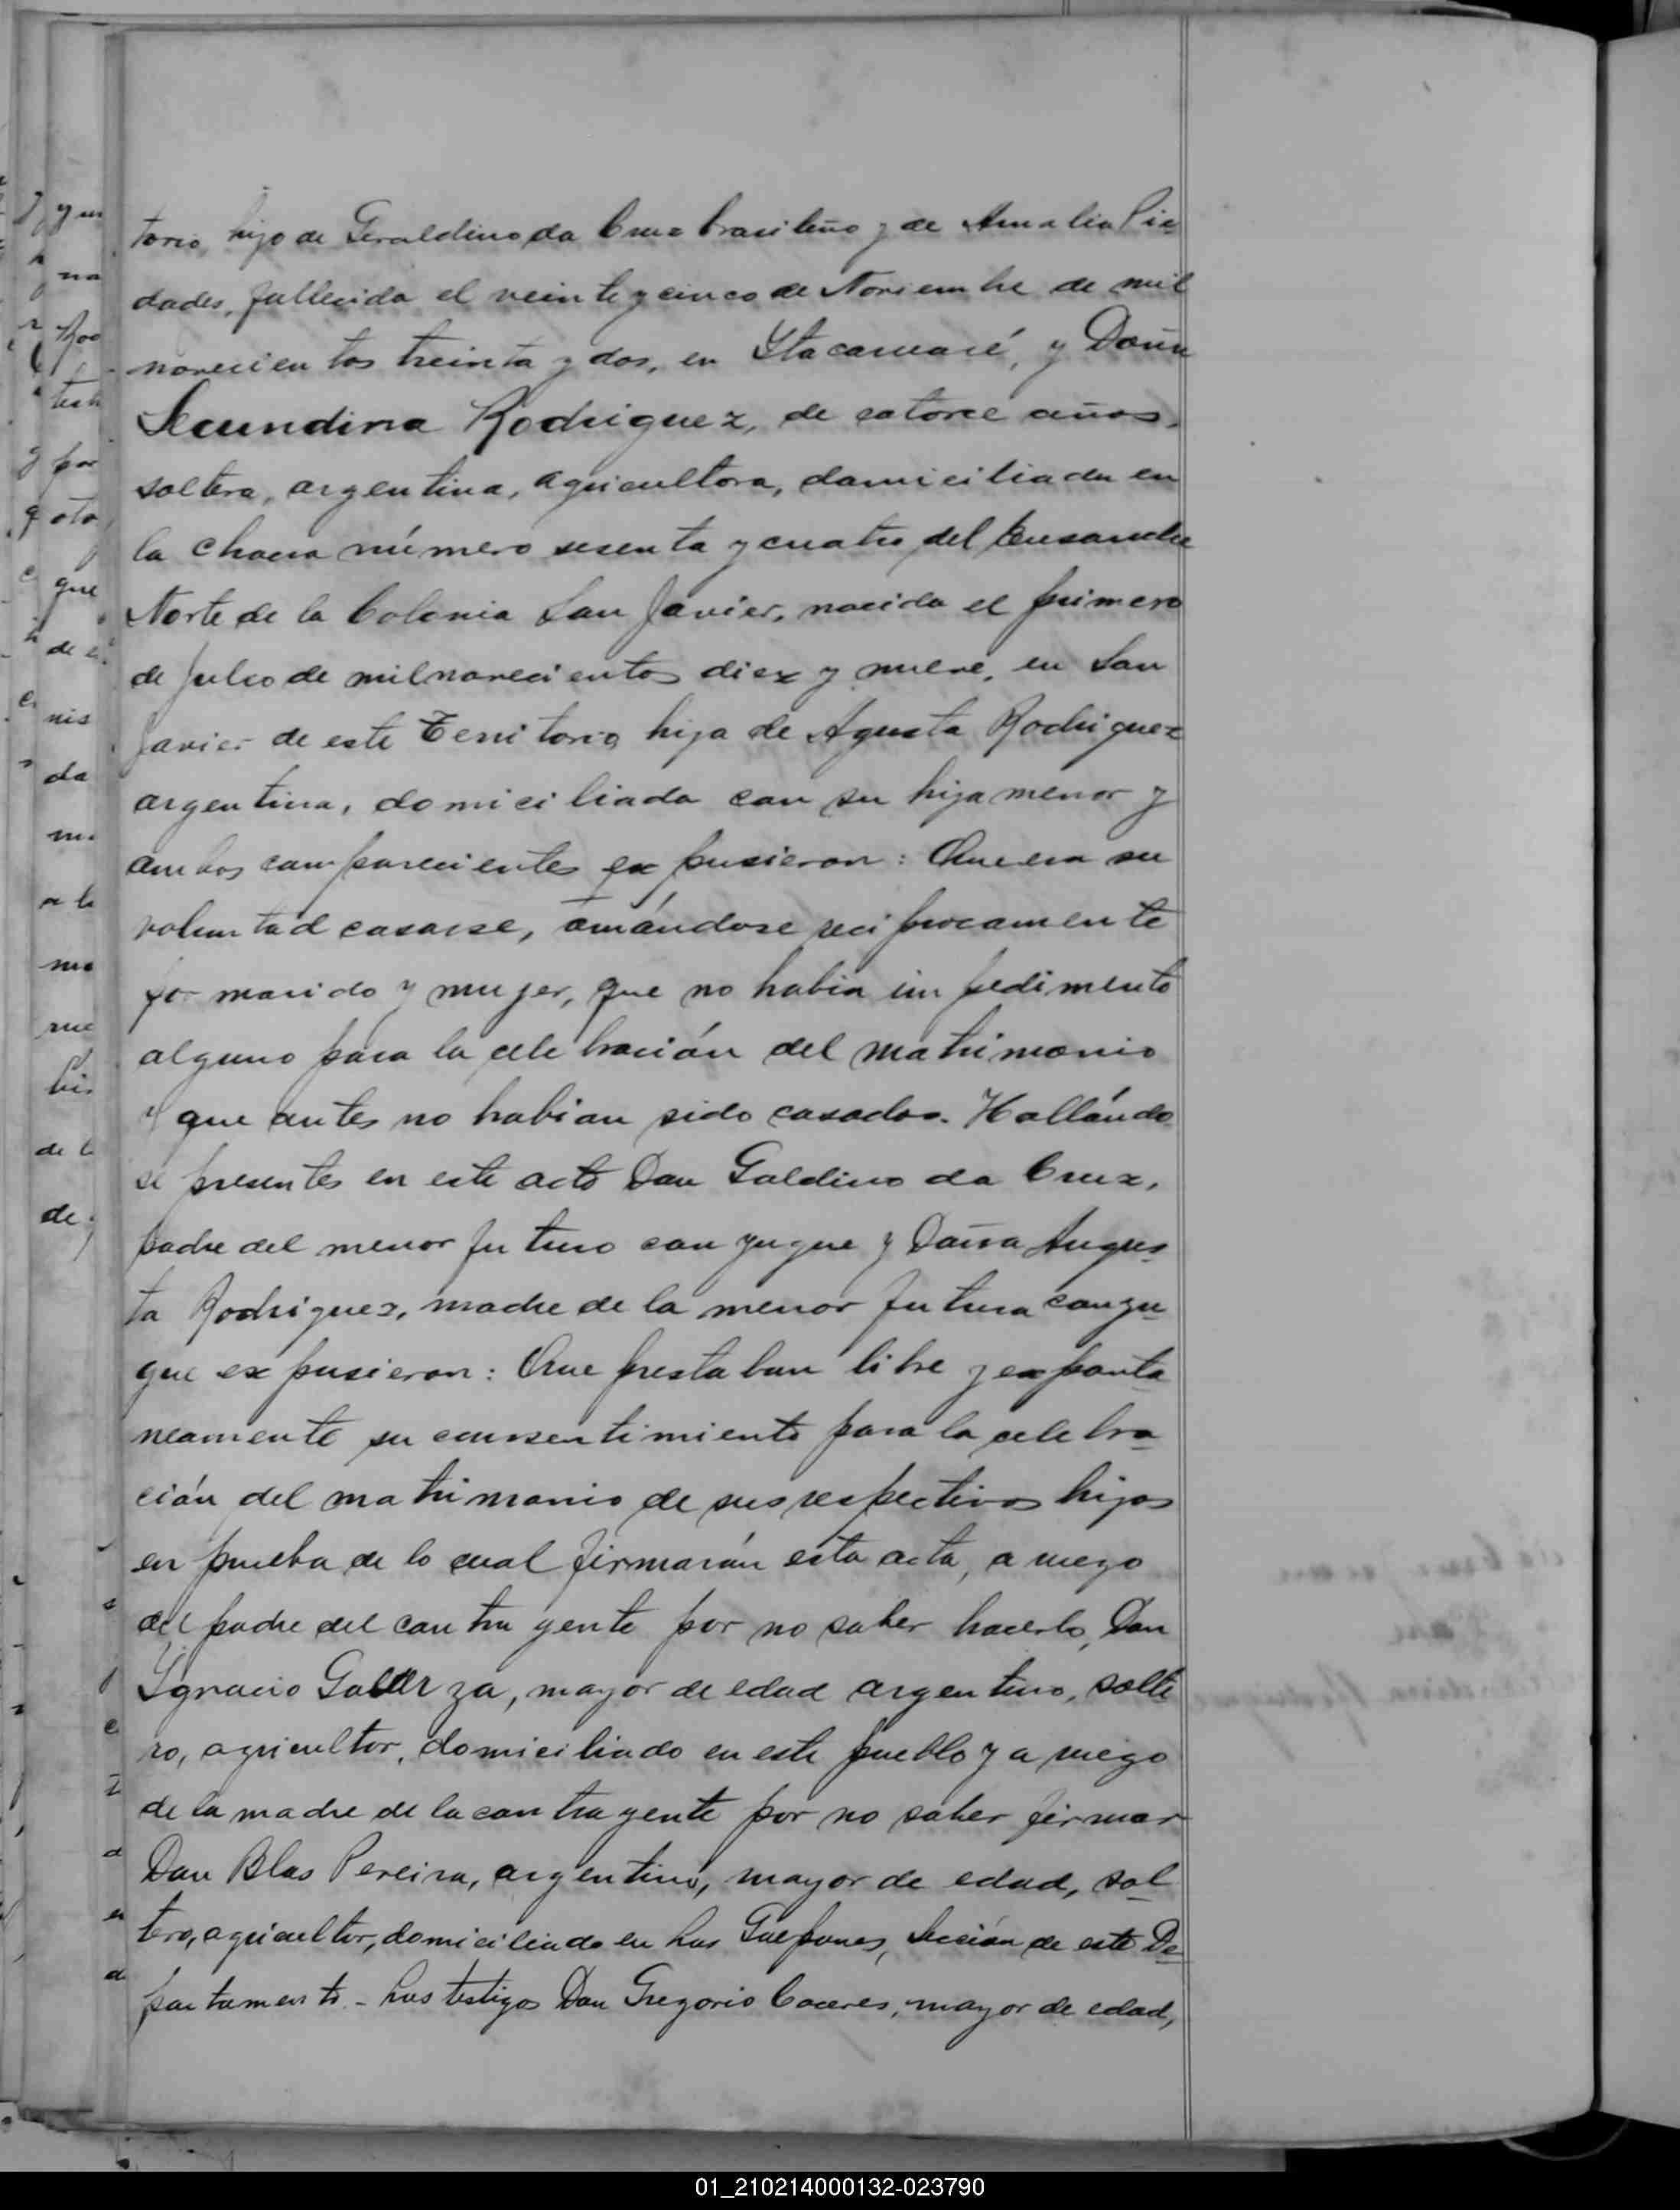 torio, hijo de Geraldino da Cruz brasileño y de Amalia Pie
dades, fallecida el veinte y cinco de Noviembre de mil
novecientos treinta y dos, en Ytacaruaré, y Doña
Secundina Rodriguez, de catorce años,
soltera, argentina, agricultora, domiciliada en
la chacra número sesenta y cuatro del Ensanche
Norte de la Colonia San Javier, nacida el primero
de Julio de mil novecientos diez y nueve, en San
Javier de este Territorio, hija de Agusta Rodriguez
argentina, domiciliada con su hija menor y
ambos comparecientes expusieron: Que era su
voluntad casarse, amándose reciprocamente
por marido y mujer, que no habia impedimento
alguno para la celebración del matrimonio
y que antes no habian sido casados. Hallándo
se presentes en este acto Don Galdino da Cruz,
padre del menor futuro conyugue y Doña Augus
ta Rodriguez, madre de la menor futura conyu
gue expusieron: Que prestaban libre y exponta
neamente su consentimiento para la celebra
ción del matrimonio de sus respectivos hijos
en prueba de lo cual firmarán esta acta, a ruego
del padre del contrayente por no saber hacerlo, Don
Ygnacio Galarza, mayor de edad argentino, solte
ro, agricultor, domiciliado en este pueblo y a ruego
de la madre de la contrayente por no saber firmar
Don Blas Pereira, argentino, mayor de edad, sol
tero, agricultor, domiciliado en Los Galpones, Sección de este De
partamento.- Los testigos Don Gregorio Caceres, mayor de edad,
01_210214000132-023790